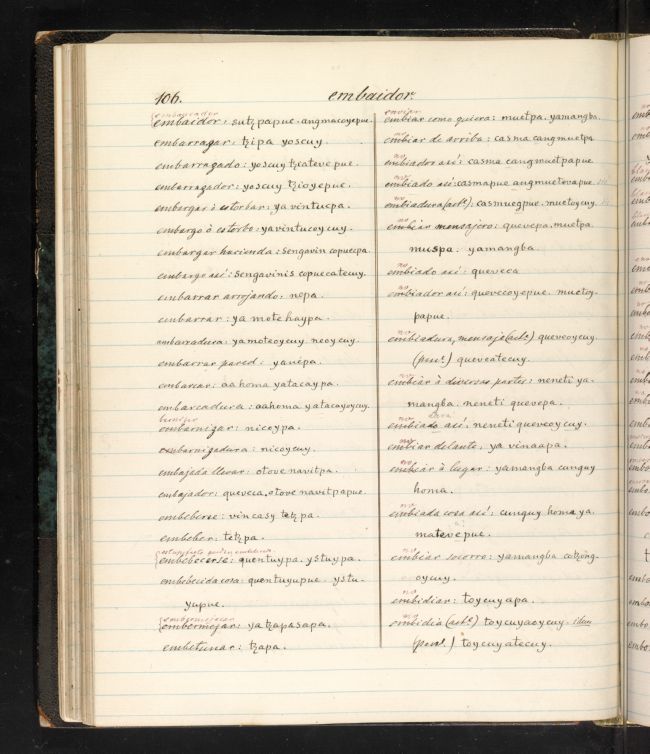 106.
embaidor.
embaucador
embaidor, sutzpapue. angmacoyepue.
embarragar: tzipa yoscuy.
embarrazado: yoscuy tzcatevepue.
embarrazador: yoscuy tzcioyepue.
embargar ò estorbar: yavintucpa.
embargo ò estorbo: yavintucoycuy.
embargar hacienda: sengavin copuecpa.
embargo asi: sengavinis copuecatecuy.
embarrar arrojando: nepa.
embarrar: ya motehaypa.
embarradura: yamoteoycuy neoycuy.
embarrar pared: yanipa.
embarcar: aahoma yatacaypa.
embarcadura: aahoma yatacayoycuy.
embarnizar: nicoypa.
embarnizadura: nicoycuy.
embajada llevar: otove navitpa.
embajador: quevcia, otove navitpapue.
embeberse: vincasy tetzpa.
embeber: tetzpa.
embebecerse: quentuypa. ystuypa.
embebecida cosa: quentuyupue. ystu-
yupue.
embermejar: yatzapasapa.
embetunar: tzapa.
enviar
embiar como quiera: muetpa. yamangba.
embiar de arriba: casma cangmuetpa
no
embiador asi: casma cangmuetpapue
no
embiado asi: casmapue angmuetovapue.
no
embiadura (act.): casmuegpue. muetoycuy.
no
embiar mensajero: quevepa. muetpa.
muspa. yamangba
no
embiado asi: queveca
no
embiador asi: quevecoyepue. muetoy-
papue.
no
embiadura, mensaje (act.) queveoycuy.
(pas.) quevecatecuy.
no
embiar à diversas partes: neneti ya-
mangba. neneti quevepa.
no
embiado asi, neneti queveoycuy.
no
embiar delante, ya vinaapa.
no
embiar à lugar: yamangba cunguy
homa.
no
embiada cosa asi: cunguy homa ya
matevepue.
no
embiar socorro: yamangba cotzong-
oycuy.
no
embidiar: toycuyapa.
no
embidia (act.) toycuyaoycuy.
(pas.) toycuyatecuy.